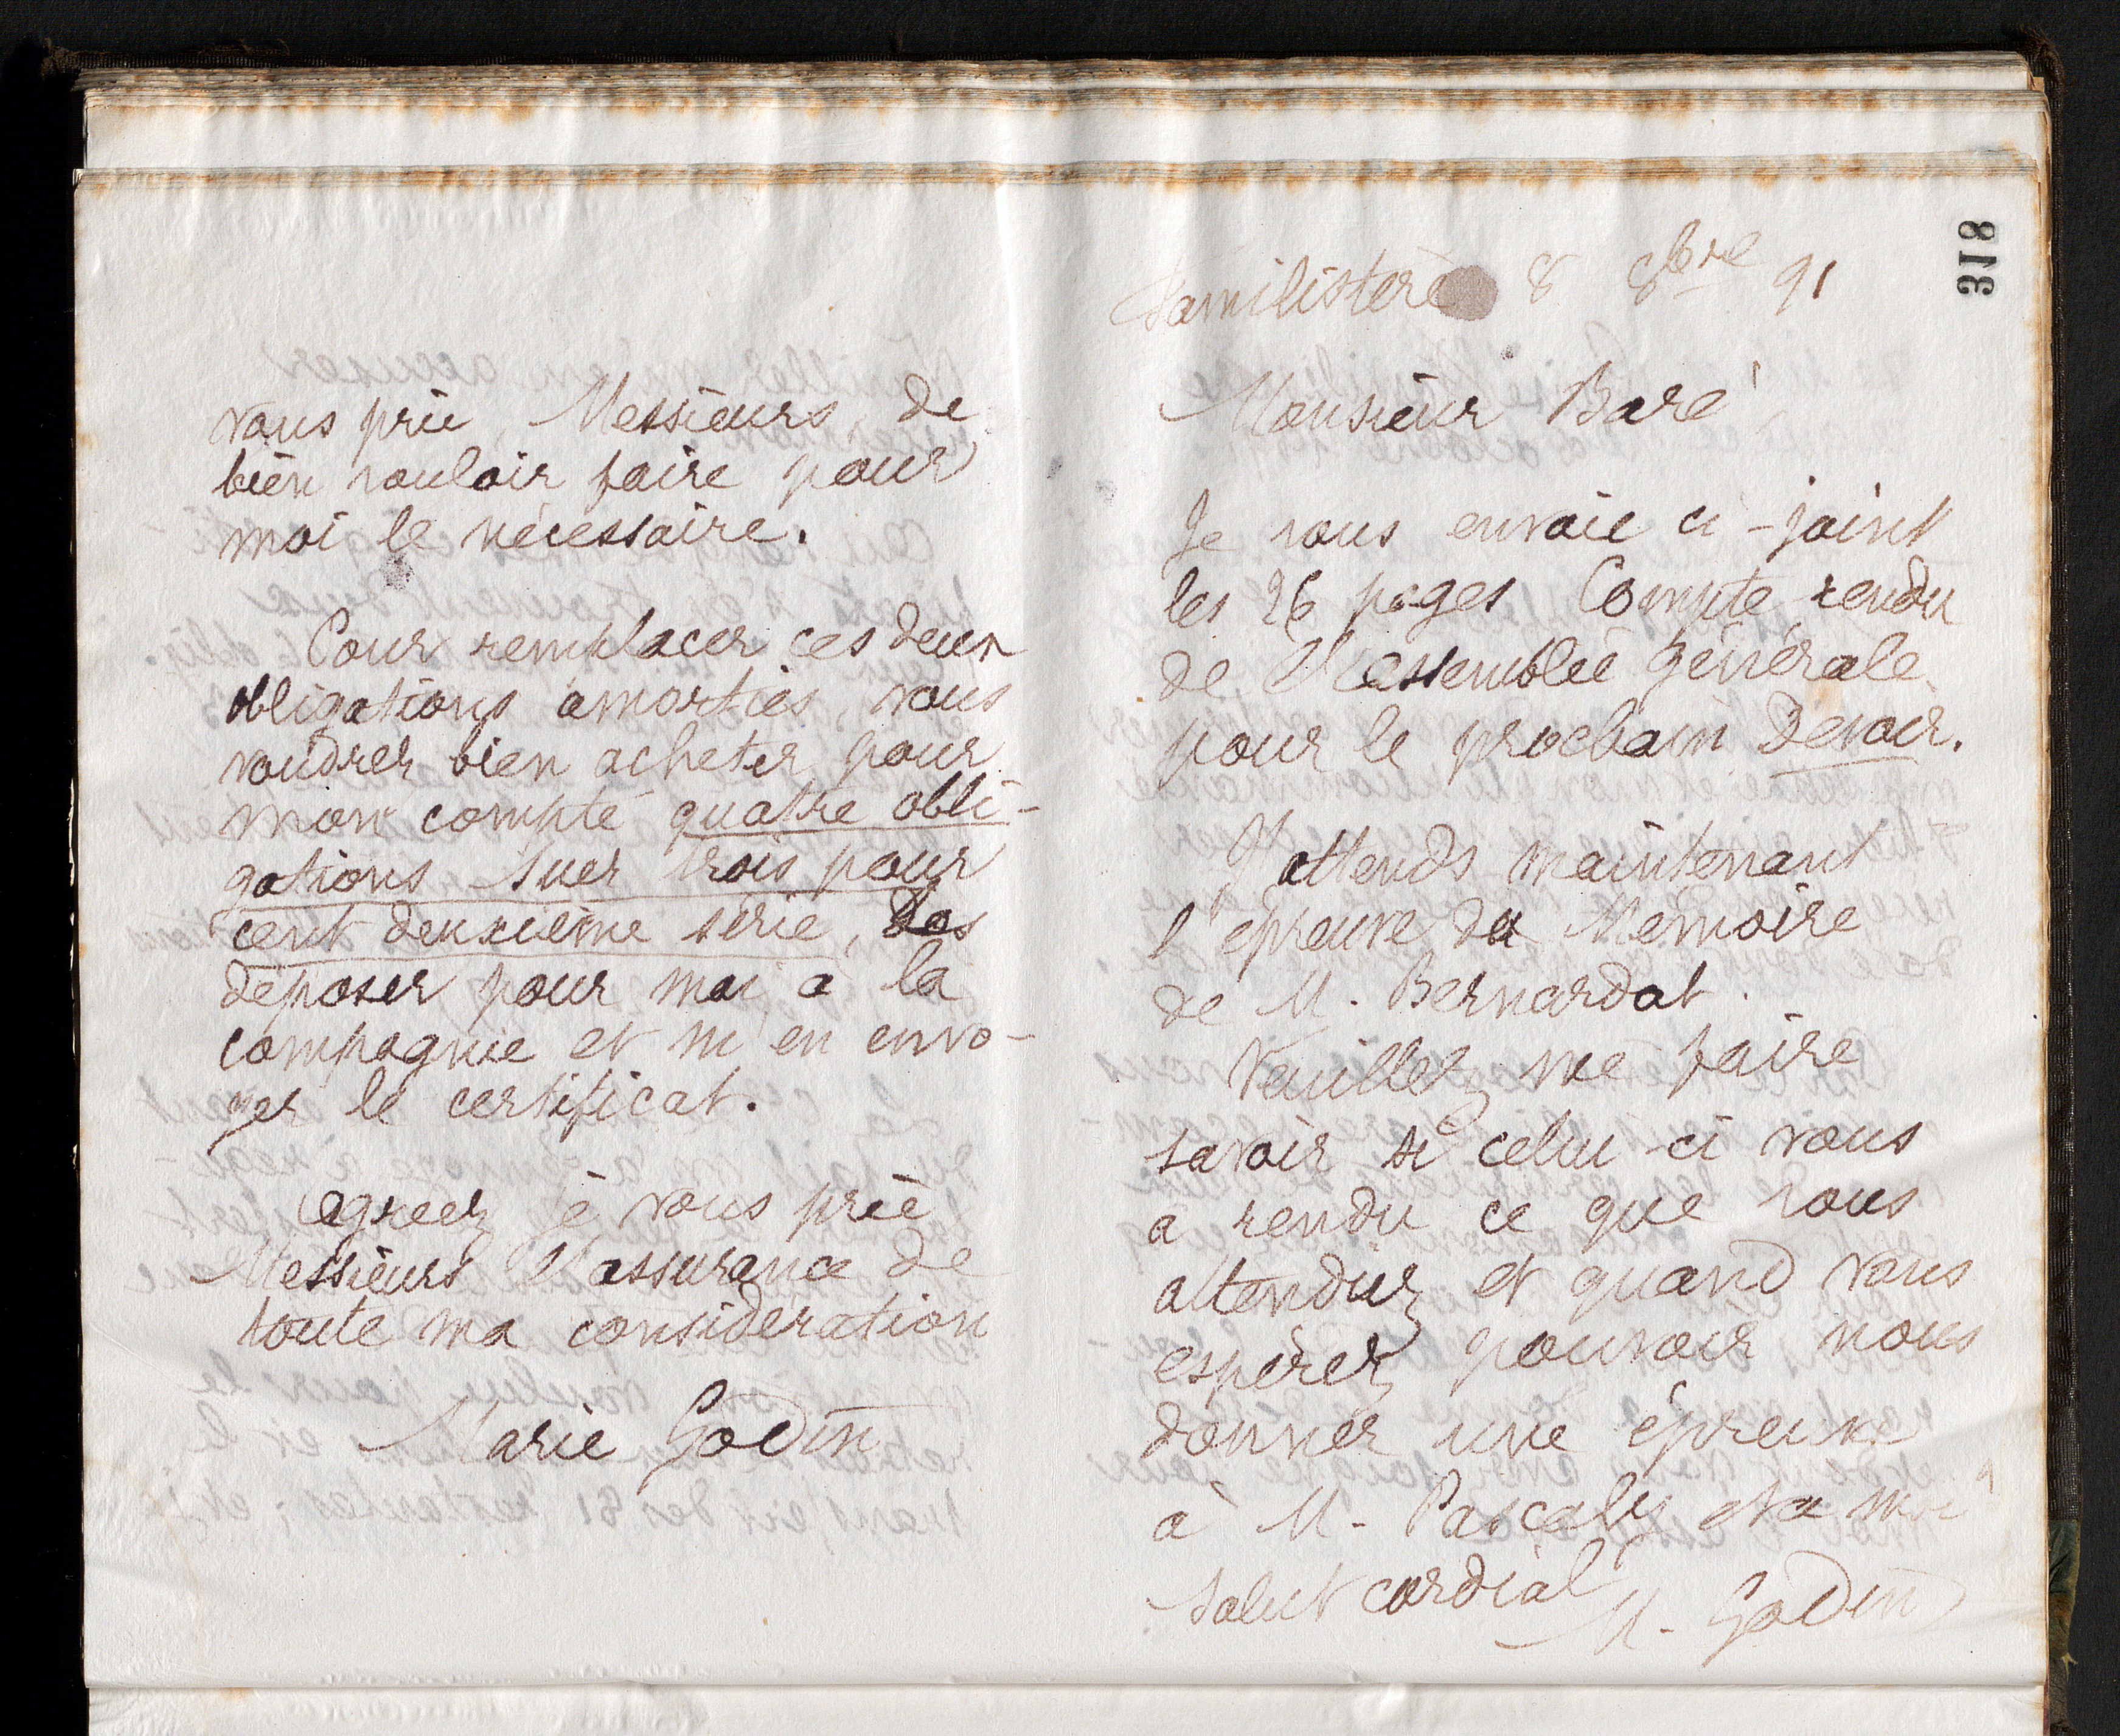 vous prie, Messieurs, de
bien vouloir faire pour
moi le nécessaire.
Pour remplacer ces deux
obligations amorties, vous
voudrez bien acheter pour
mon compte quatre obli-
gations Suez trois pour
cent deuxième série, les
déposer pour moi à la
compagnie et m'en envo-
yer le certificat.
Agréez je vous prie
Messieurs l'assurance de
toute ma considération
Marie Godin
318
Familistère 8 8bre 91
Monsieur Baré,
Je vous envoie ci-joint
les 26 pages Compte rendu
de l'assemblée générale
pour le prochain Devoir.
J'attends maintenant
l'épreuve du Mémoire
de M. Bernardot.
Veuillez me faire
savoir si celui-ci vous
a rendu ce que vous
attendiez et quand vous
espérez pouvoir nous
donner une épreuve
à M. Pascaly et à moi
Salut cordial
M. Godin